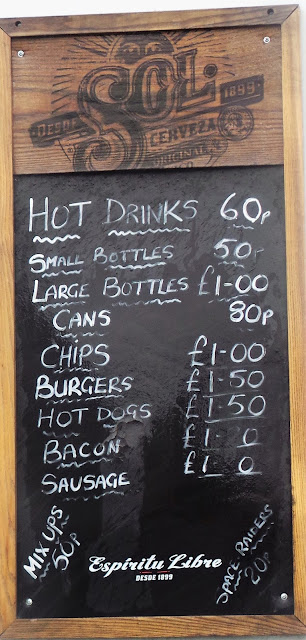 SOL.
DESDE 1899
CERVEZA
ORIGINAL
HOT DRINKS 60p
SMALL BOTTLES 50p
LARGE BOTTLES £1-00
CANS 80p
CHIPS £1-00
BURGERS £1-50
HOT DOGS £1-50
BACON
SAUSAGE
MIX UPS
50p
SPACE RAIDERS
20p
Espíritu Libre
DESDE 1899